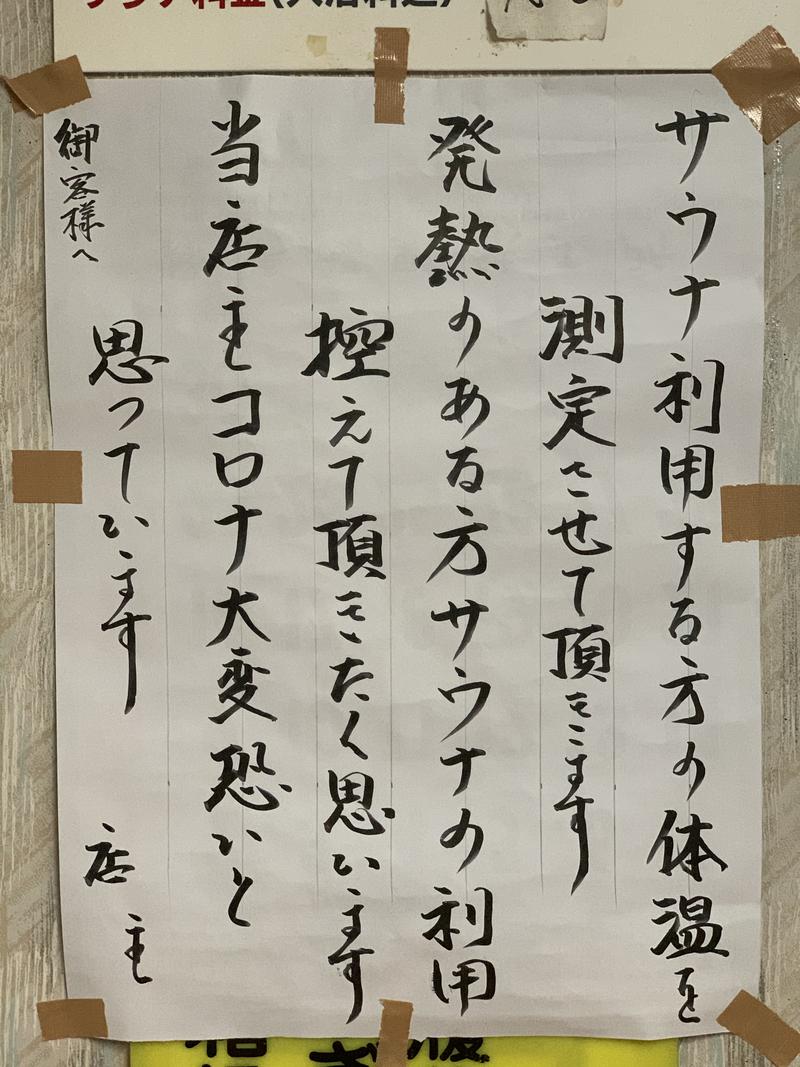 サウナ料金(入浴料込)
サウナ利用する方の体温を
測定させて頂きます
発熱のある方サウナの利用
控えて頂きたく思います
当店主コロナ大変恐いと
思っています
店主
御客様へ